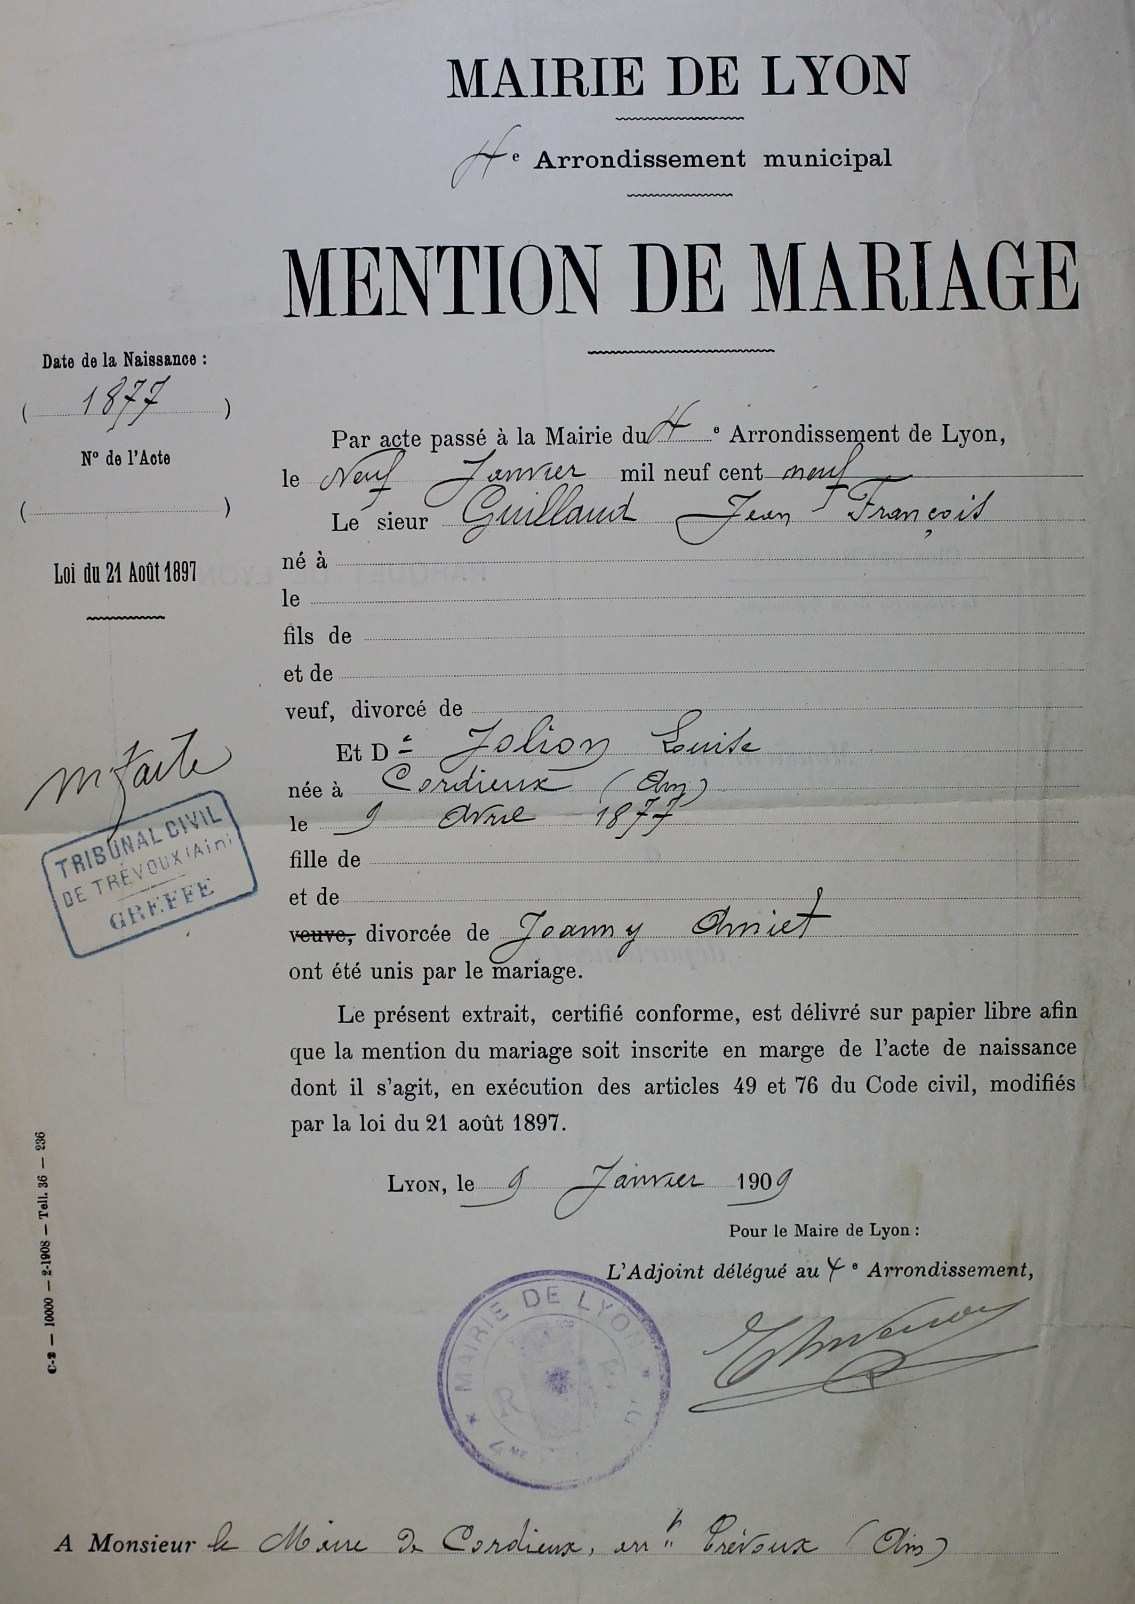 MAIRIE DE LYON
4e Arrondissement municipal
MENTION DE MARIAGE
Date de la Naissance :
( 1877 )
No de l'Acte
( )
Loi du 21 Août 1897
Par acte passé à la Mairie du 4e Arrondissement de Lyon,
le Neuf Janvier mil neuf cent neuf
Le sieur Guillaud Jean François
né à
le
fils de
et de
veuf, divorcé de
Et De Jolion Louise
née à Cordieux (Ain)
le 9 Avril 1877
fille de
et de
veuve, divorcée de Joanny Amiet
ont été unis par le mariage.
Le présent extrait, certifié conforme, est délivré sur papier libre afin
que la mention du mariage soit inscrite en marge de l'acte de naissance
dont il s'agit, en exécution des articles 49 et 76 du Code civil, modifiés
par la loi du 21 août 1897.
Lyon, le 9 Janvier 1909
Pour le Maire de Lyon :
L'Adjoint délégué au 4e Arrondissement,
faite
TRIBUNAL CIVIL
DE TRÉVOUX (Ain)
GREFFE
C-2 — 10000 — 2-1908 — Tell. 36 — 236
MAIRIE DE LYON
R F
A Monsieur le Maire de Cordieux, arrt Trévoux (Ain)